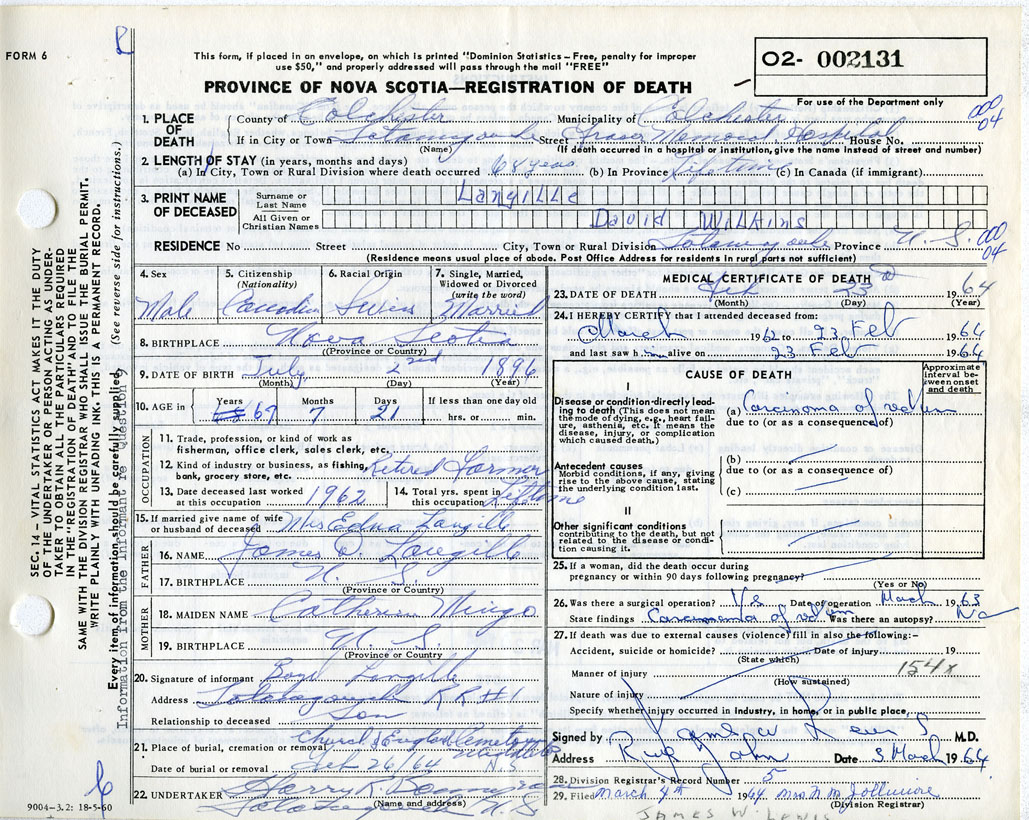 FORM 6
This form, if placed in an envelope, on which is printed "Dominion Statistics – Free, penalty for improper
use $50," and properly addressed will pass through the mail "FREE"
PROVINCE OF NOVA SCOTIA—REGISTRATION OF DEATH
O2- 002131
For use of the Department only
1. PLACE OF DEATH
County of Colchester Municipality of Colchester
000 04
If in City or Town Tatamagouche Street Fraser Memorial Hospital House No.
(Name) (If death occurred in a hospital or institution, give the name instead of street and number)
2. LENGTH OF STAY (in years, months and days)
(a) In City, Town or Rural Division where death occurred 68 years (b) In Province Lifetime (c) In Canada (if immigrant)
3. PRINT NAME OF DECEASED
Surname or Last Name Langille
All Given or Christian Names David Wilkins
RESIDENCE No Street City, Town or Rural Division Tatamagouche Province N. S.
000 04
(Residence means usual place of abode. Post Office Address for residents in rural parts not sufficient)
4. Sex
Male
5. Citizenship (Nationality)
Canadian
6. Racial Origin
Swiss
7. Single, Married, Widowed or Divorced (write the word)
Married
8. BIRTHPLACE Nova Scotia
(Province or Country)
9. DATE OF BIRTH July 2nd 1896
(Month) (Day) (Year)
10. AGE in Years Months Days If less than one day old
67 7 21 hrs. or min.
OCCUPATION
11. Trade, profession, or kind of work as
fisherman, office clerk, sales clerk, etc.
12. Kind of industry or business, as fishing,
bank, grocery store, etc. Retired Farmer
13. Date deceased last worked
at this occupation 1962
14. Total yrs. spent in
this occupation Lifetime
15. If married give name of wife
or husband of deceased Mrs Edna Langille
FATHER
16. NAME James D. Langille
17. BIRTHPLACE N. S.
(Province or Country)
MOTHER
18. MAIDEN NAME Catherine Mingo
19. BIRTHPLACE N. S.
(Province or Country)
20. Signature of informant Boyd Langille
Address Tatamagouche R R # 1
Relationship to deceased Son
21. Place of burial, cremation or removal Church of England Cemetery
Date of burial or removal Feb 26/64 N.S.
22. UNDERTAKER Harry R.
(Name and address)
Tatamagouche N. S.
9004-3.2: 18-5-60
MEDICAL CERTIFICATE OF DEATH
23. DATE OF DEATH Feb 23 1964
(Month) (Day) (Year)
24. I HEREBY CERTIFY that I attended deceased from:
March 1962 to 23 Feb 1964
and last saw him alive on 23 Feb 1964
CAUSE OF DEATH
Approximate interval between onset and death
I
Disease or condition directly leading to death (This does not mean the mode of dying, e.g., heart failure, asthenia, etc. It means the disease, injury, or complication which caused death.)
(a) Carcinoma of rectum
due to (or as a consequence of)
Antecedent causes
Morbid conditions, if any, giving rise to the above cause, stating the underlying condition last.
(b)
due to (or as a consequence of)
(c)
II
Other significant conditions
contributing to the death, but not related to the disease or condition causing it.
25. If a woman, did the death occur during
pregnancy or within 90 days following pregnancy?
(Yes or No)
26. Was there a surgical operation? Yes Date of operation March 1963
State findings Carcinoma of rectum Was there an autopsy? No
27. If death was due to external causes (violence) fill in also the following:–
Accident, suicide or homicide? Date of injury 19
(State which)
Manner of injury 154x
(How sustained)
Nature of injury
Specify whether injury occurred in industry, in home, or in public place,
Signed by James W Lewis M.D.
Address River John Date 3 March 1964
28. Division Registrar's Record Number 5
29. Filed March 4th 1964 Mrs. N. M. Jollimore
(Division Registrar)
JAMES W. LEWIS
SEC. 14 – VITAL STATISTICS ACT MAKES IT THE DUTY
OF THE UNDERTAKER OR PERSON ACTING AS UNDER-
TAKER TO OBTAIN ALL THE PARTICULARS REQUIRED
IN THE "REGISTRATION OF DEATH" AND TO FILE THE
SAME WITH THE DIVISION REGISTRAR WHO SHALL ISSUE THE BURIAL PERMIT.
WRITE PLAINLY WITH UNFADING INK. THIS IS A PERMANENT RECORD.
Every item of information should be carefully supplied. (See reverse side for instructions.)
Information from the informant re Question 9